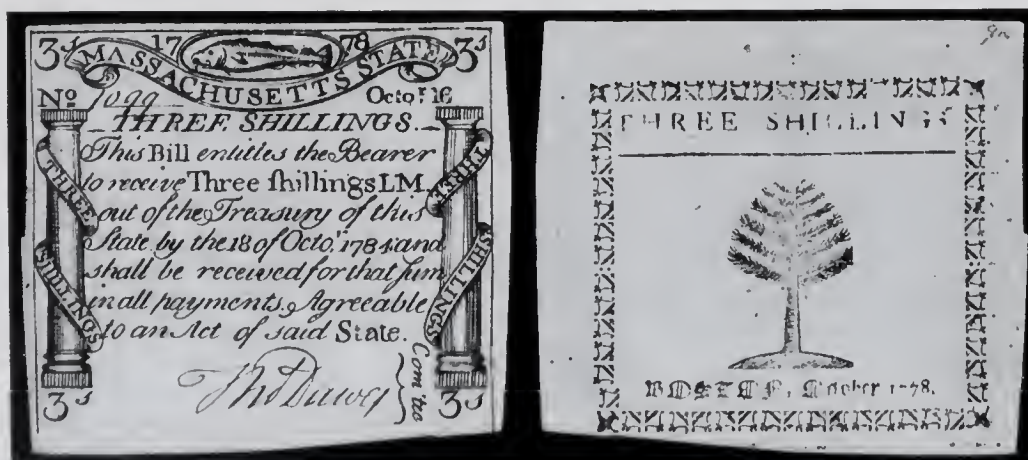 3s 17 78 3s
MASSACHUSETTS STATE
No 7099 Octor. 16
THREE SHILLINGS.
This Bill entitles the Bearer
to receive Three ſhillings LM.
out of the Treasury of this
State, by the 18 of Octo.r 1784 and
shall be received for that ſum
in all payments, Agreeable
to an Act of said State.
THREE
SHILLINGS
THREE
SHILLINGS
Tho Dawes
Com'tee
3s 3s
THREE SHILLINGS
BOSTON, October 1778.